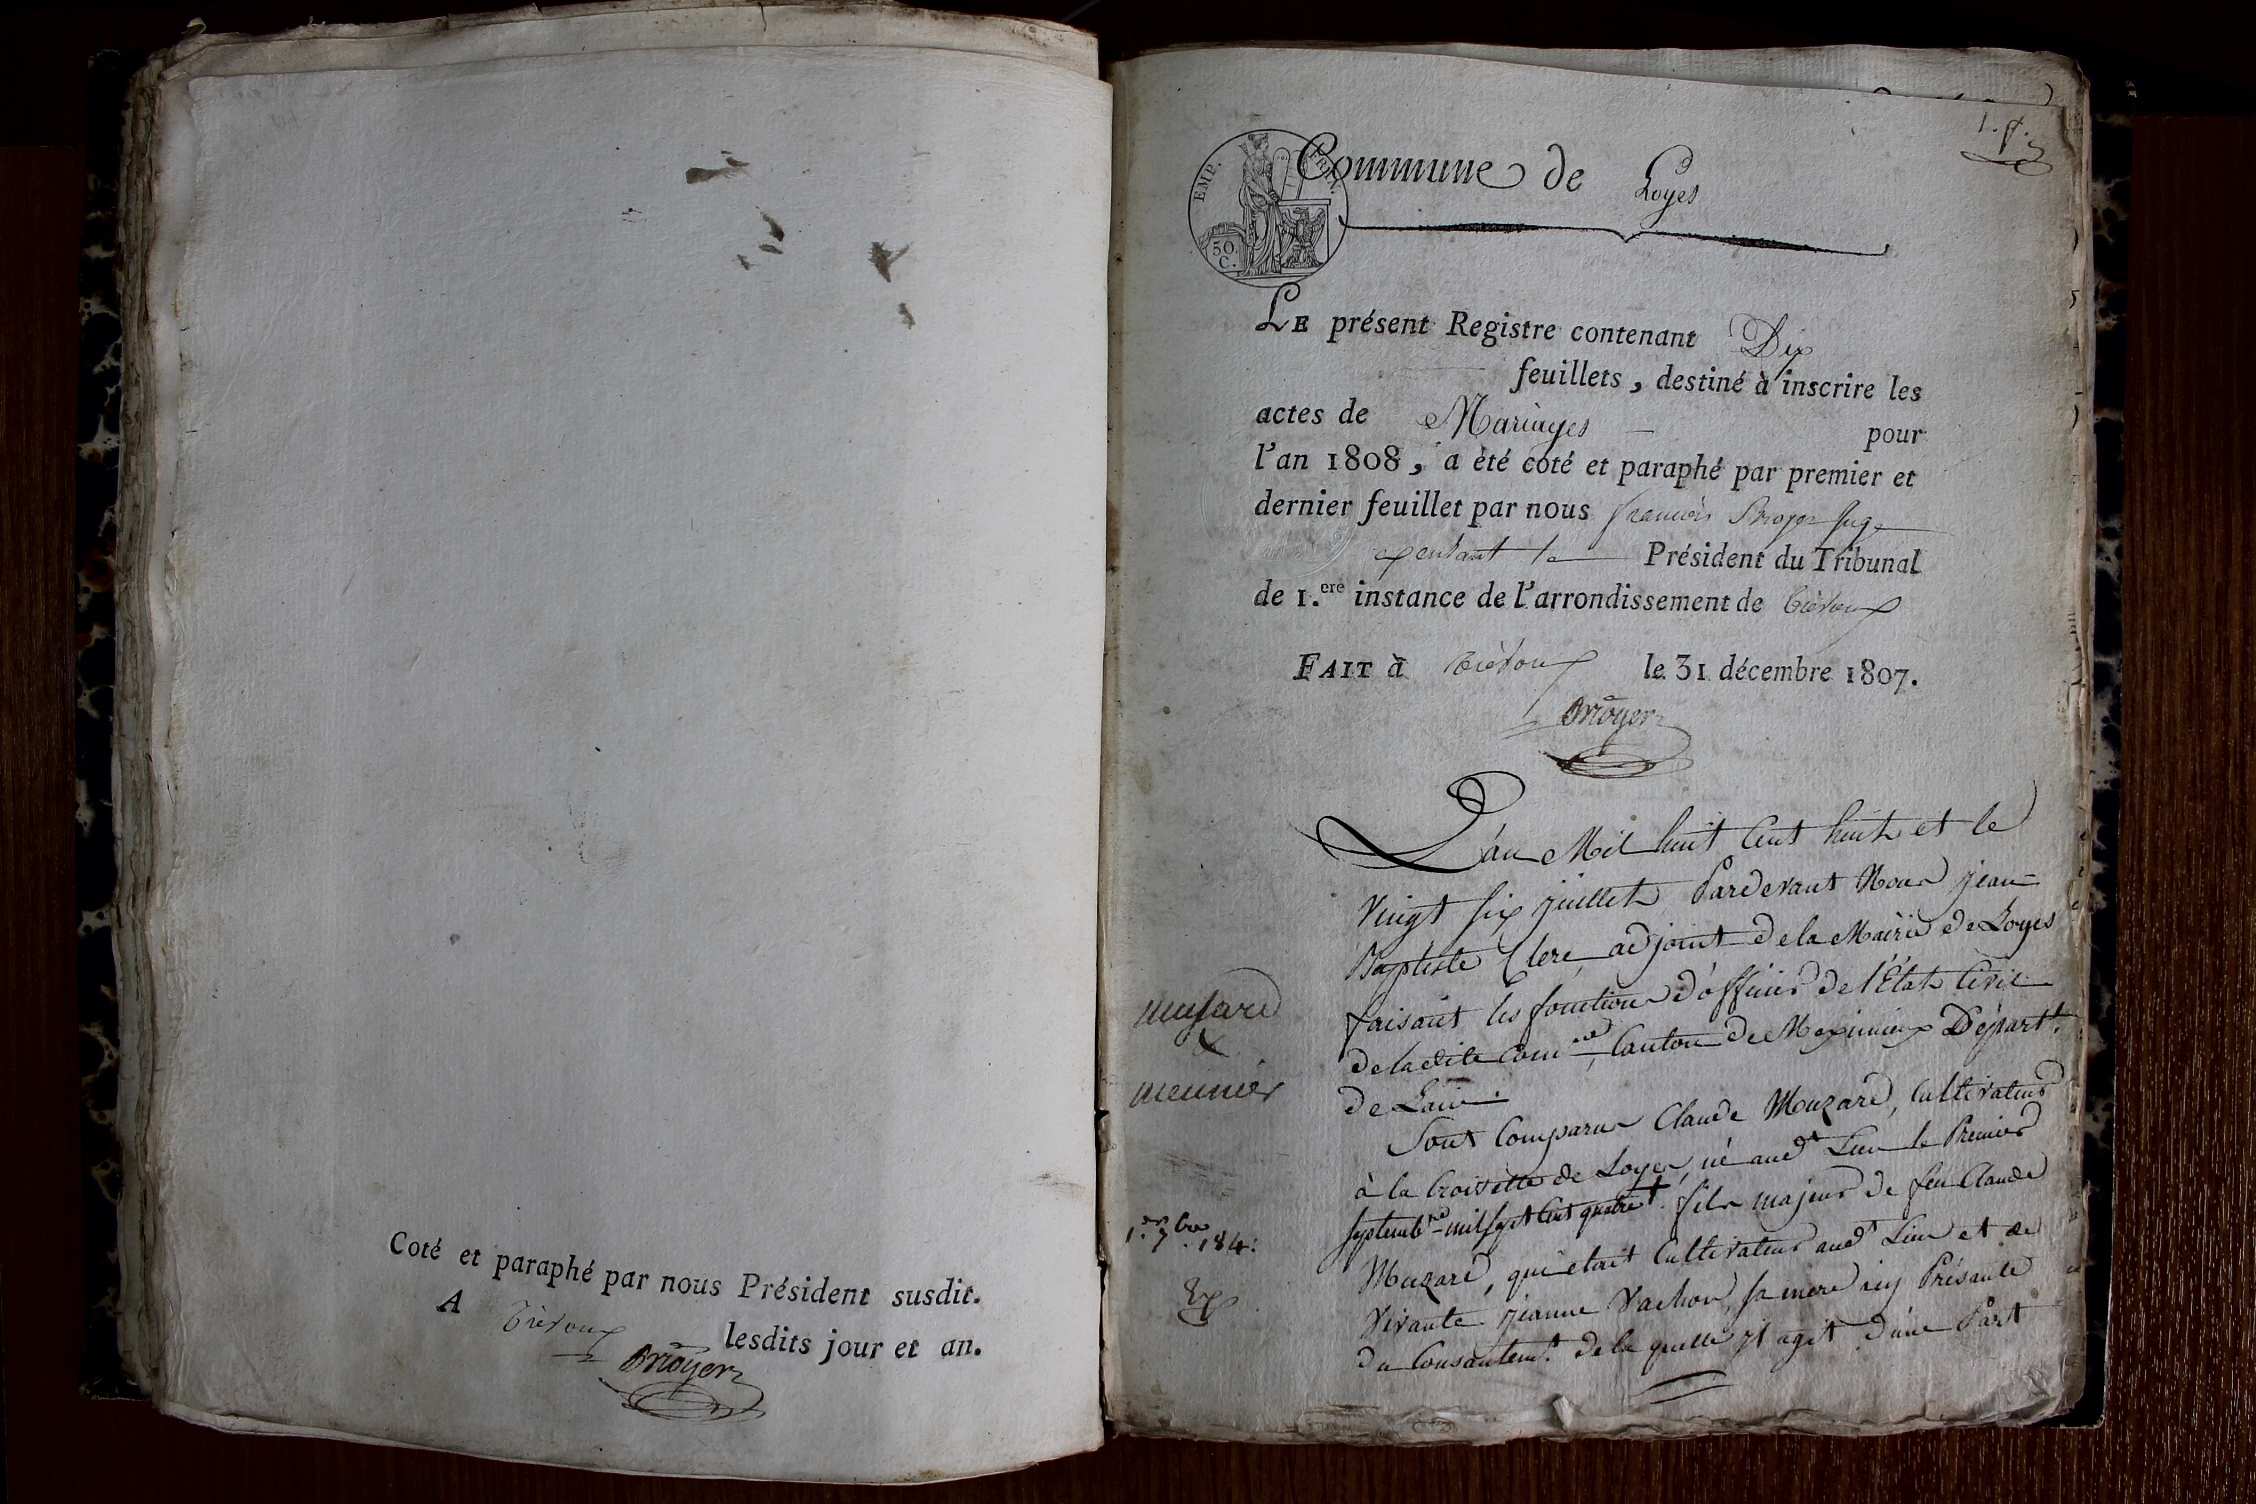 Coté et paraphé par nous Président susdit.
A Trévoux lesdits jour et an.
1.
EMP. FRAN.
50. C.
Commune de Loyes
LE présent Registre contenant Dix
feuillets, destiné à inscrire les
actes de Mariages pour
l'an 1808, a été coté et paraphé par premier et
dernier feuillet par nous françois juge
Président du Tribunal
de 1.ere instance de l'arrondissement de Trévoux
FAIT à Trévoux le 31 décembre 1807.
L'an Mil huit Cent huit et le
Vingt six juillet Pardevant Nous jean
Baptiste Clerc adjoint de la Mairie de Loyes
faisant les fonctions d'officier de l'État Civil
de ladite Com.ne Canton de Meximieux Départ.t
de Lain.
Sont Comparus Claude Muzard, Cultivateur
à la Croisette de Loyes, né aud.t Lieu le Premier
septemb.re mil sept Cent quatre + fils majeur de feu Claude
Muzard, qui etait Cultivateur aud.t Lieu et de
Vivante jeanne Vachon, sa mere icy Présente
du Consentem.t de la quelle jl agit d'une Part
musard
&
meunier
1.er 7.bre 184: